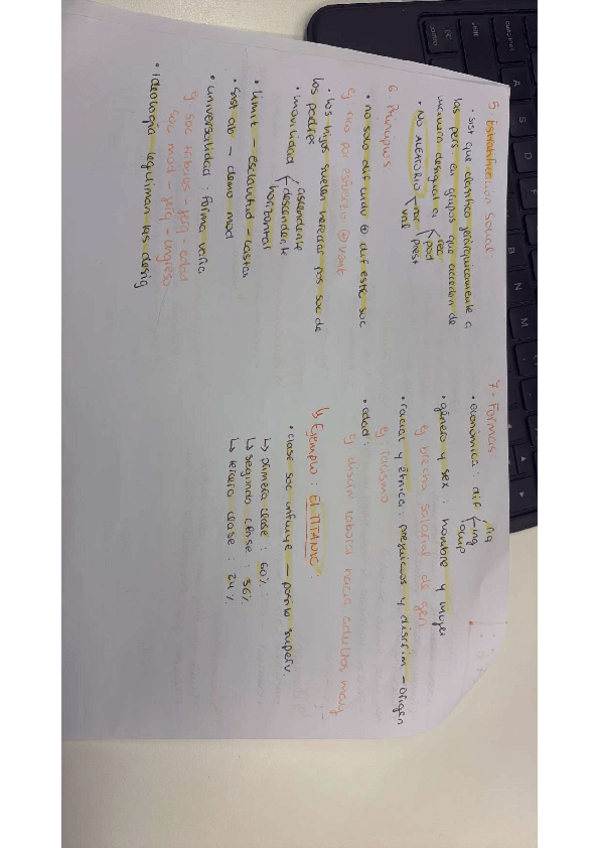 5. Estratificación social:
• sist que clasifica jerárquicamente a
las pers en grupos que acceden de
manera desigual a { rec
pod
prest
• NO ALEATORIO { nor
val
6 Principios
• no solo dif indv ⊕ dif estr soc
ej rico por esfuerzo ⊕ vent
• los hijos suelen heredar pos soc de
los padres
• movilidad { ascendente
descendente
horizontal
• limit – esclavitud – castas
• sist ab – demo mod
• universalidad: forma varía
ej soc tribus – jerq – edad
soc mod – jerq – ingreso
• ideología legitiman las desig
7- Formas
• económica: dif { riq
ing
ocup
• género y sex: hombre y mujer
ej brecha salarial de gen
• racial y étnica: prejuicios y discrim – origen
ej racismo
• edad:
ej discrim laboral hacia adultos may
↳ Ejemplo: El TITANIC:
• clase soc influye – posib superv.
↳ primera clase: 60%
↳ segunda clase: 36%
↳ tercera clase: 24%